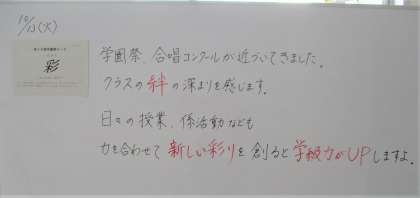 10/13(火)
彩
学園祭、合唱コンクールが近づいてきました。
クラスの絆の深まりを感じます。
日々の授業、係活動なども
力を合わせて新しい彩りを創ると学級力がUPしますよ。